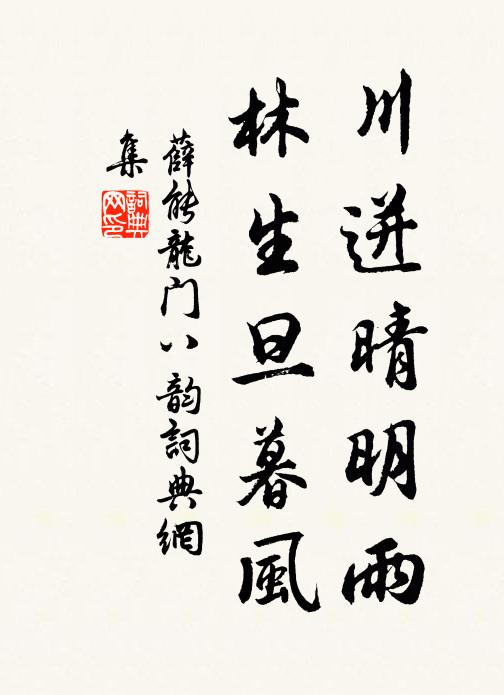 川迸晴明雨
林生旦暮風
薛能龍門八韵詞典網
集
詞典
网印